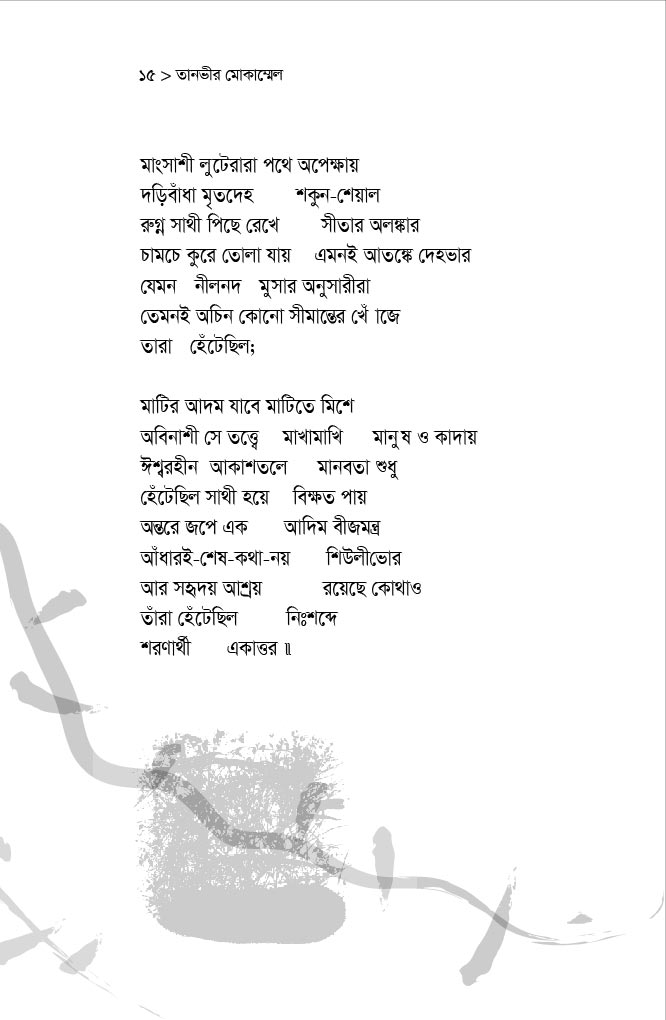 ১৫ > তানভীর মোকাম্মেল
মাংসাশী লুটেরারা পথে অপেক্ষায়
দড়িবাঁধা মৃতদেহ শকুন-শেয়াল
রুগ্ন সাথী পিছে রেখে সীতার অলঙ্কার
চামচে কুরে তোলা যায় এমনই আতঙ্কে দেহভার
যেমন নীলনদ মুসার অনুসারীরা
তেমনই অচিন কোনো সীমান্তের খোঁজে
তারা হেঁটেছিল;
মাটির আদম যাবে মাটিতে মিশে
অবিনাশী সে তত্ত্বে মাখামাখি মানুষ ও কাদায়
ঈশ্বরহীন আকাশতলে মানবতা শুধু
হেঁটেছিল সাথী হয়ে বিক্ষত পায়
অন্তরে জপে এক আদিম বীজমন্ত্র
আঁধারই-শেষ-কথা-নয় শিউলীভোর
আর সহৃদয় আশ্রয় রয়েছে কোথাও
তাঁরা হেঁটেছিল নিঃশব্দে
শরণার্থী একাত্তর ॥